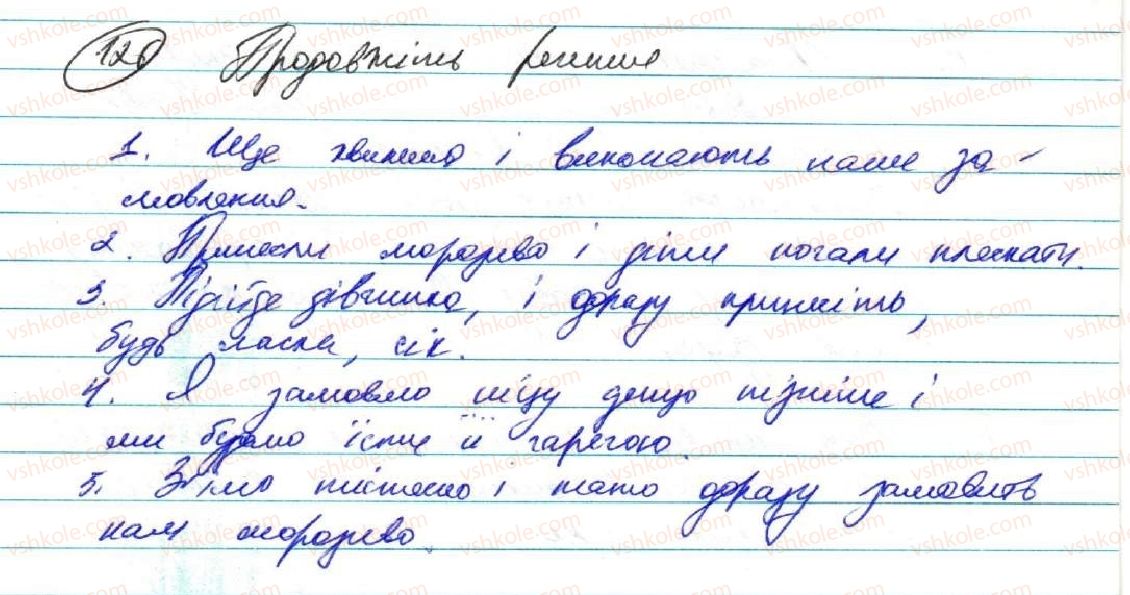 120 Продовжіть речення
1. Ще хвилина і виконають наше за-
мовлення.
2. Принесли морозиво і діти почали плескати.
3. Підійде дівчинка, і одразу принесіть,
будь ласка, сік.
4. Я замовлю піцу дещо пізніше і
ми будемо їсти її гарячою.
5. З'їмо тістечко і тато одразу замовить
нам морозиво.